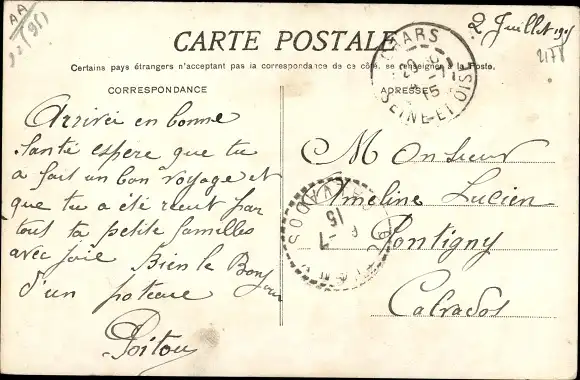 AA
2 Juillet 1915
2178
CARTE POSTALE
Certains pays étrangers n'acceptant pas la correspondance de ce côté, se renseigner à la Poste.
CORRESPONDANCE
ADRESSE
CHARS
20
7
15
SEINE-ET-OISE
Arrivée en bonne
Santé espère que tu
a fait un bon voyage et
que tu a été recut par
tout ta petite familles
avec joie Bien le Bonjour
d'un poteau
Poitou
Monsieur
Ameline Lucien
Pontigny
Calvados
7
15